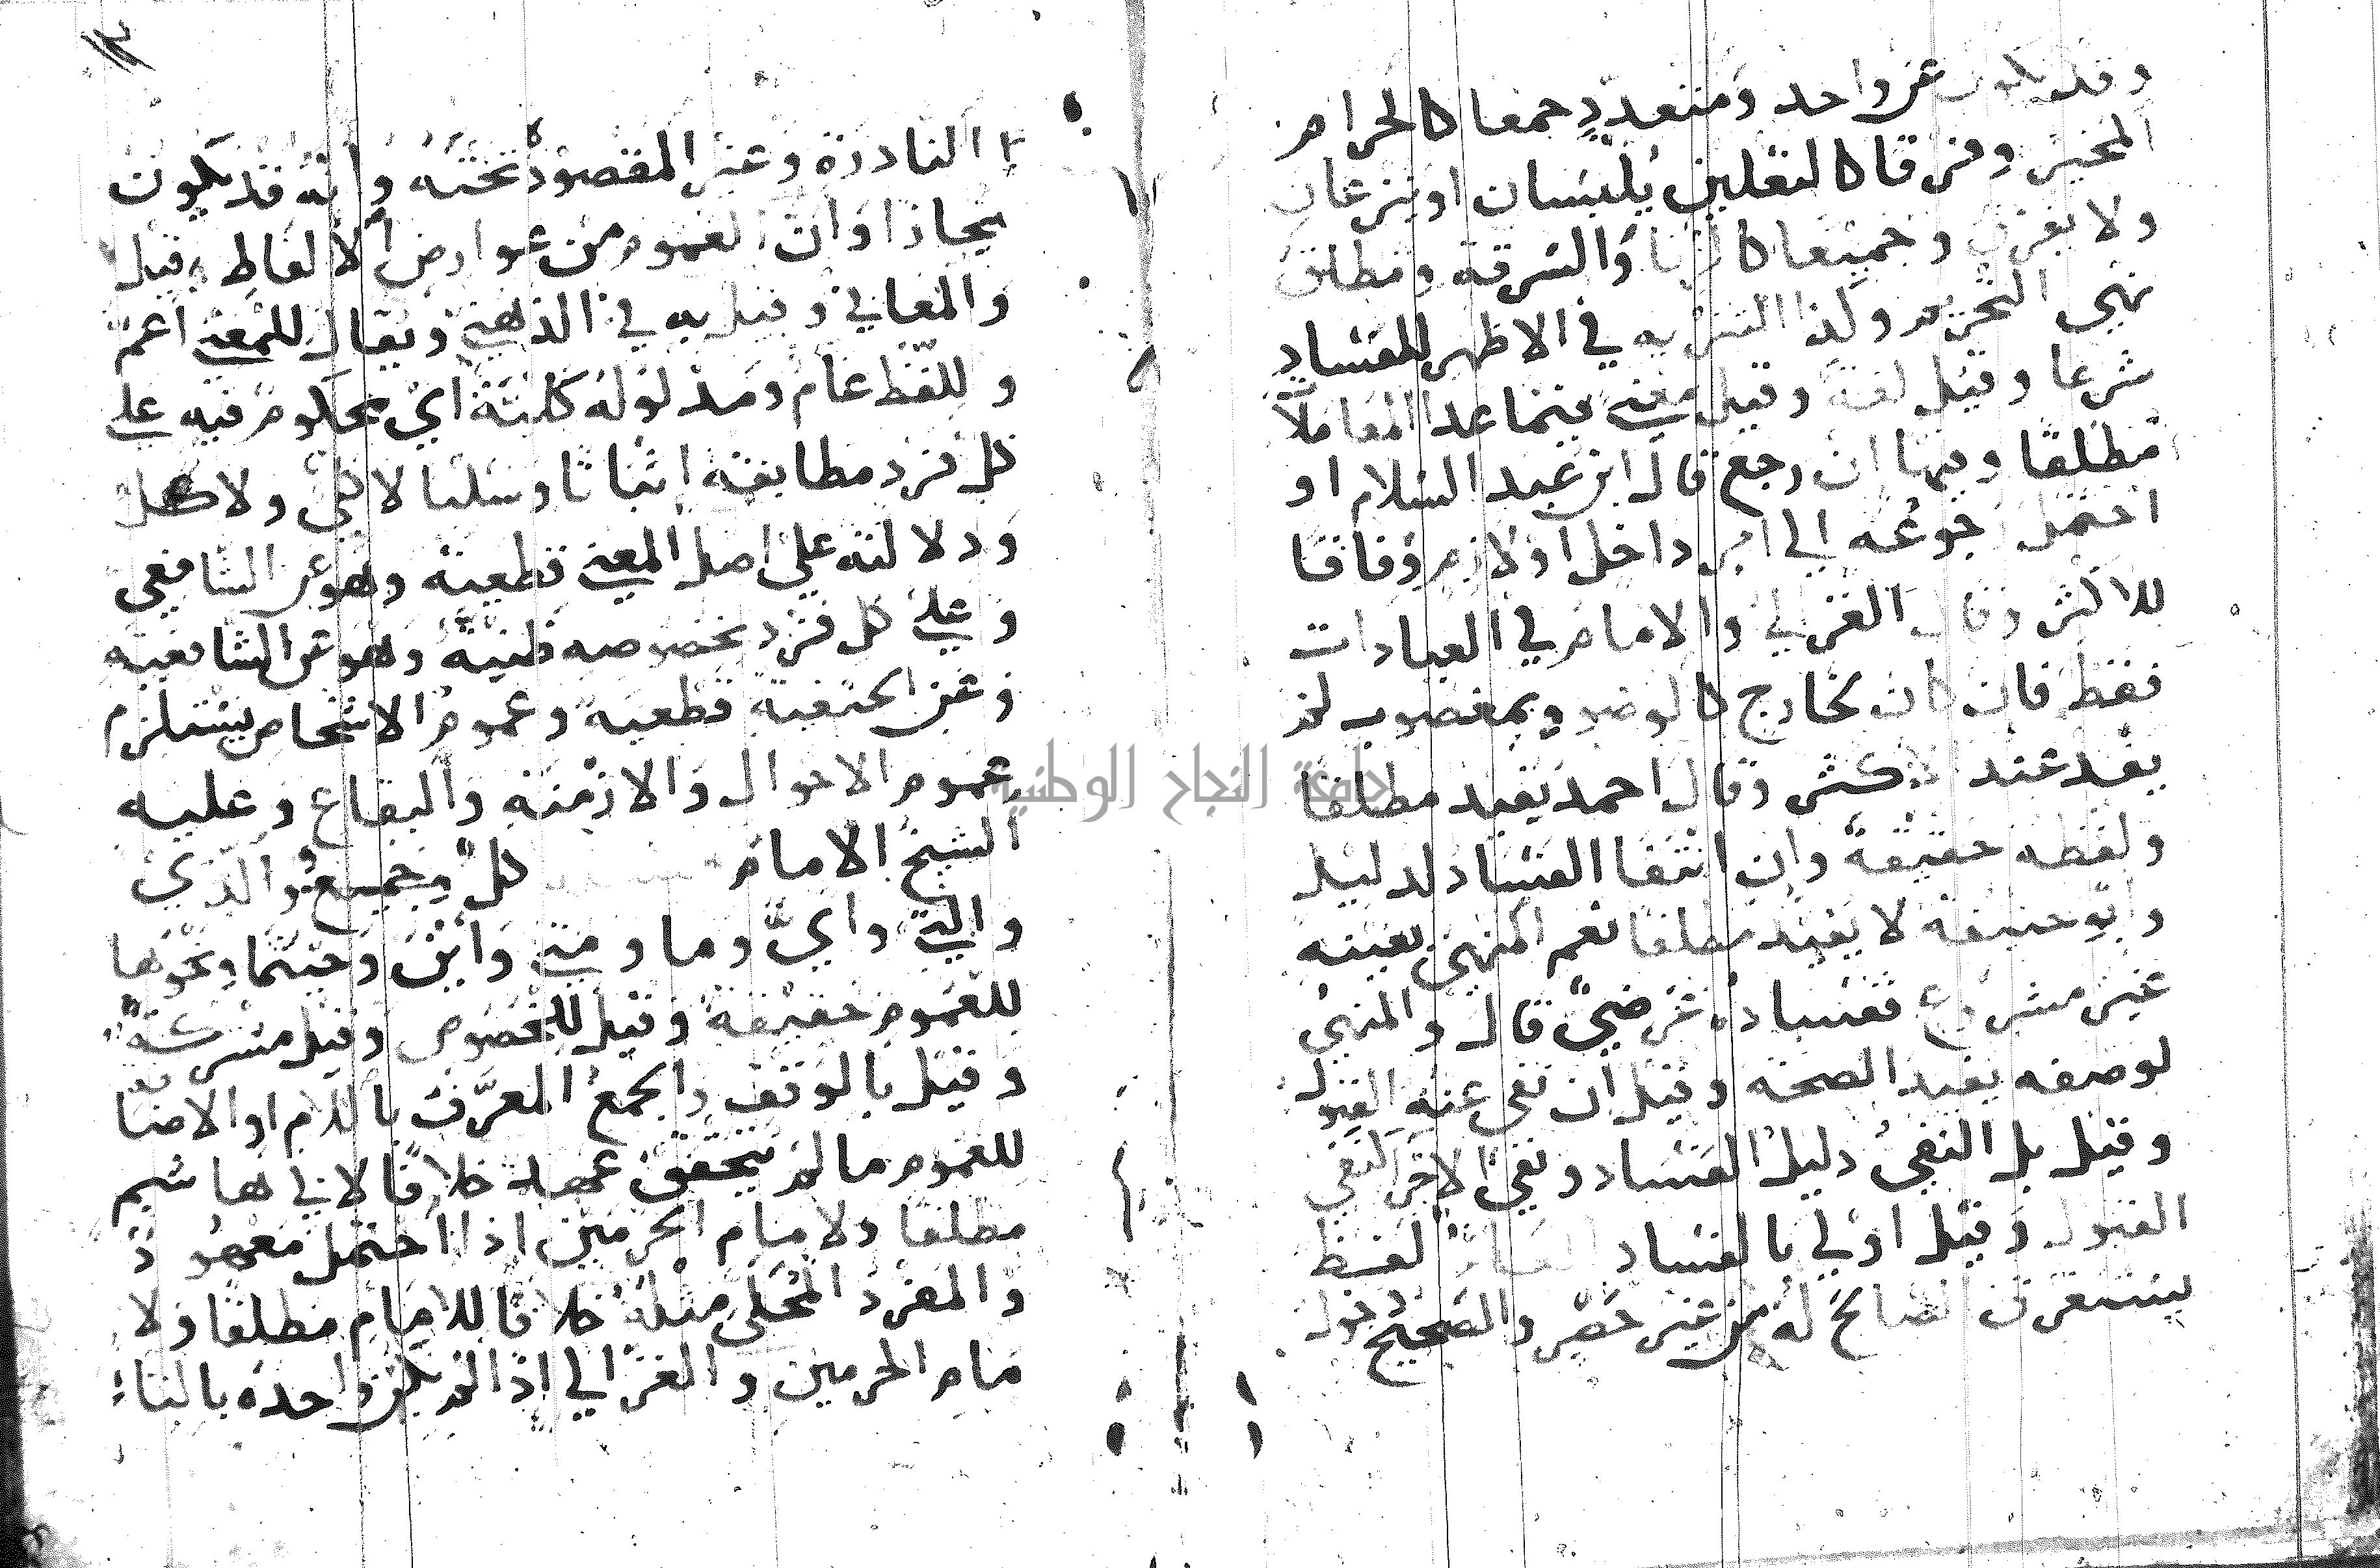 وقد يكون عن واحد ومتعدد جمعا كالحرام
المخير وفرقا كالنعلين يلبسان او ينزعان
ولا يفرق وجميعا كالزنا والسرقة ومطلق
نهي التحريم وكذا التنزيه في الاظهر للفساد
شرعا وقيل لغة وقيل معنى فيما عدا المعاملات
مطلقا وفيها ان رجع قال ابن عبد السلام او
احتمل رجوعه الى امر داخل او لازم وفاقا
للاكثر وقال الغزالي والامام في العبادات
فقط فان كان لخارج كالوضوء بمغصوب لم
يفد عند الاكثر وقال احمد يفيد مطلقا
ولفظه حقيقة وان انتفا الفساد لدليل
وابو حنيفة لا يفيد مطلقا نعم المنهي بعينه
غير مشروع ففساده عرضي قال والمنهي
لوصفه يفيد الصحة وقيل ان نفي عنه القبول
وقيل بل النفي دليل الفساد ونفي الاجزا كنفي
القبول وقيل اولي بالفساد العام لفظ
يستغرق الصالح له من غير حصر والصحيح دخول
النادرة وغير المقصودة تحته وانه قد يكون
مجازا وان العموم من عوارض الالفاظ وقيل
والمعاني وقيل به في الذهني ويقال للمعنى اعم
وللفظ عام ومدلوله كلية اي محكوم فيه على
كل فرد مطابقة اثباتا وسلبا لا كلي ولا كل
ودلالته على اصل المعنى قطعية وهو عن الشافعي
وعلى كل فرد بخصوصه ظنية وهو عن الشافعية
وعن الحنفية قطعية وعموم الاشخاص يستلزم
عموم الاحوال والازمنة والبقاع وعليه
الشيخ الامام كل وجميع والذي
والتي واي وما ومتى واين وحيثما ونحوها
للعموم حقيقة وقيل للخصوص وقيل مشتركة
وقيل بالوقف والجمع المعرف باللام او الاضافة
للعموم ما لم يتحقق عهد خلافا لابي هاشم
مطلقا ولامام الحرمين اذا احتمل معهود
والمفرد المحلى مثله خلافا للامام مطلقا ولا
مام الحرمين والغزالي اذا لم يكن واحده بالتاء
جامعة النجاح الوطنية